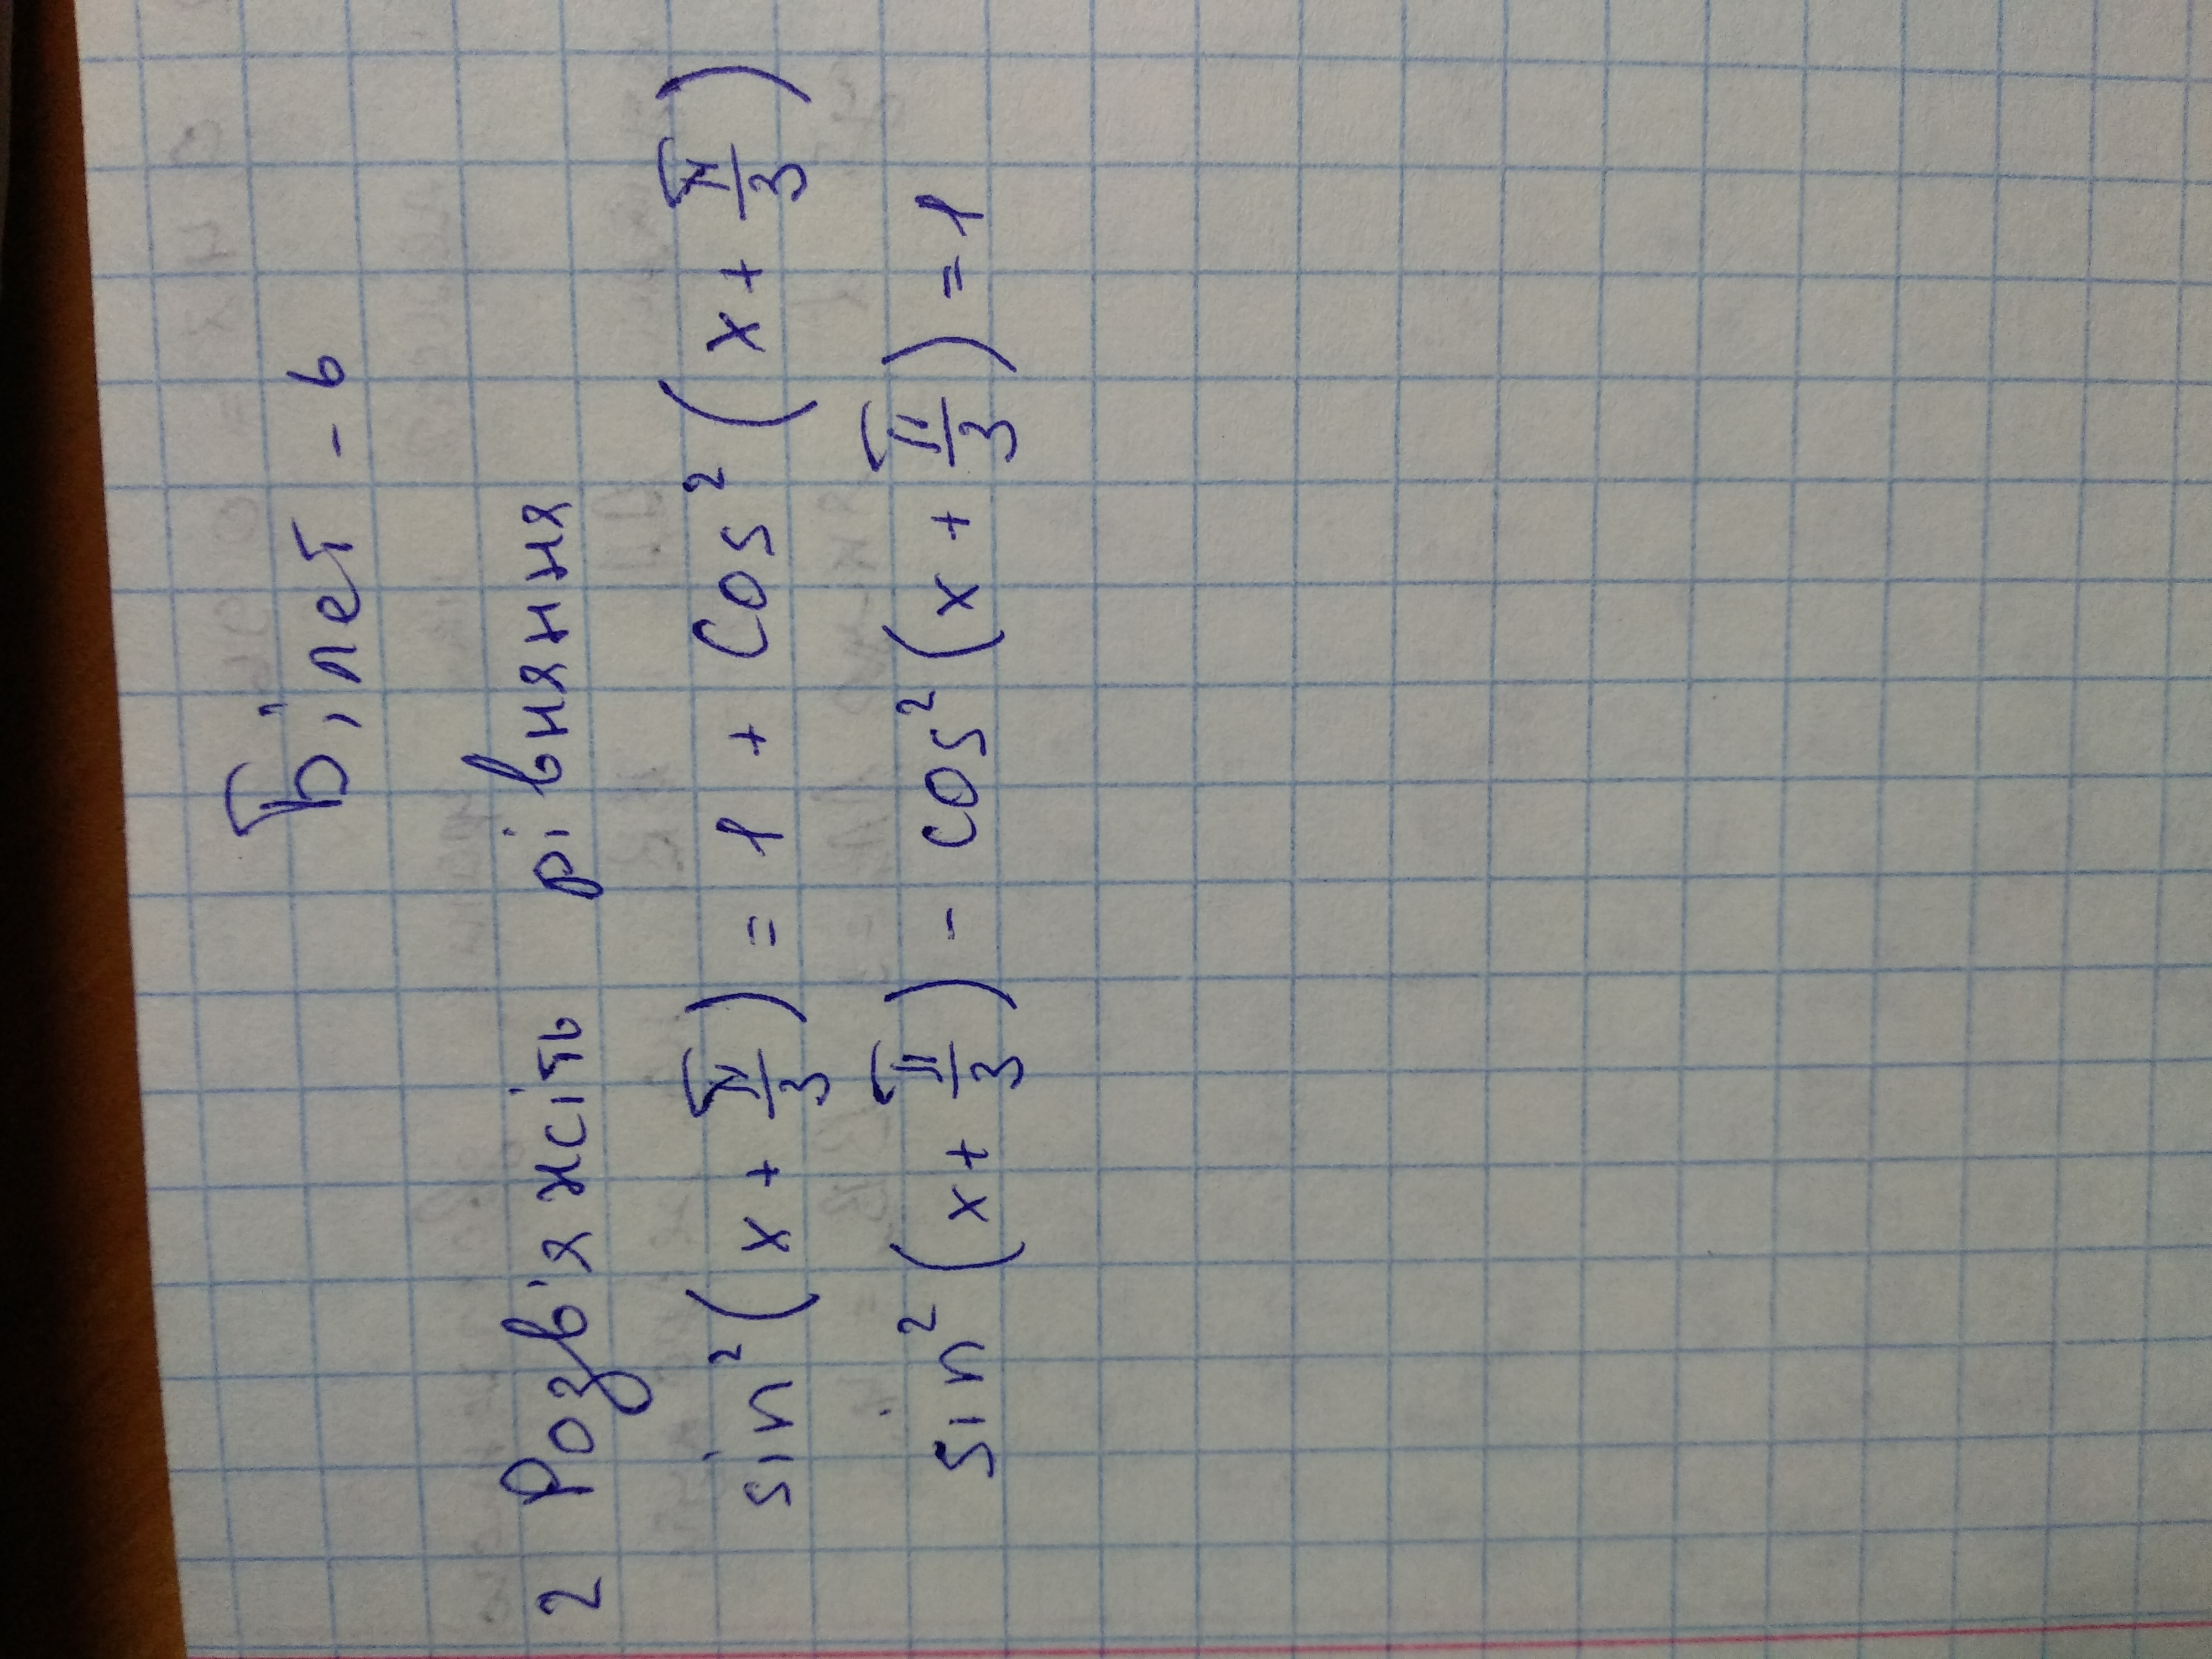 Білет - 6
2 Розв'яжіть рівняння
sin²(x + π/3) = 1 + cos²(x + π/3)
sin²(x + π/3) - cos²(x + π/3) = 1